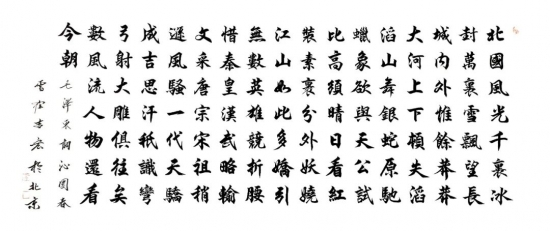 北國風光千裏冰
封萬裏雪飄望長
城內外惟餘莽莽
大河上下頓失滔
滔山舞銀蛇原馳
蠟象欲與天公試
比高須晴日看紅
裝素裹分外妖嬈
江山如此多嬌引
無數英雄競折腰
惜秦皇漢武略輸
文采唐宗宋祖稍
遜風騷一代天驕
成吉思汗秖識彎
弓射大雕俱往矣
數風流人物還看
今朝
毛澤東詞沁園春
雪 於北京